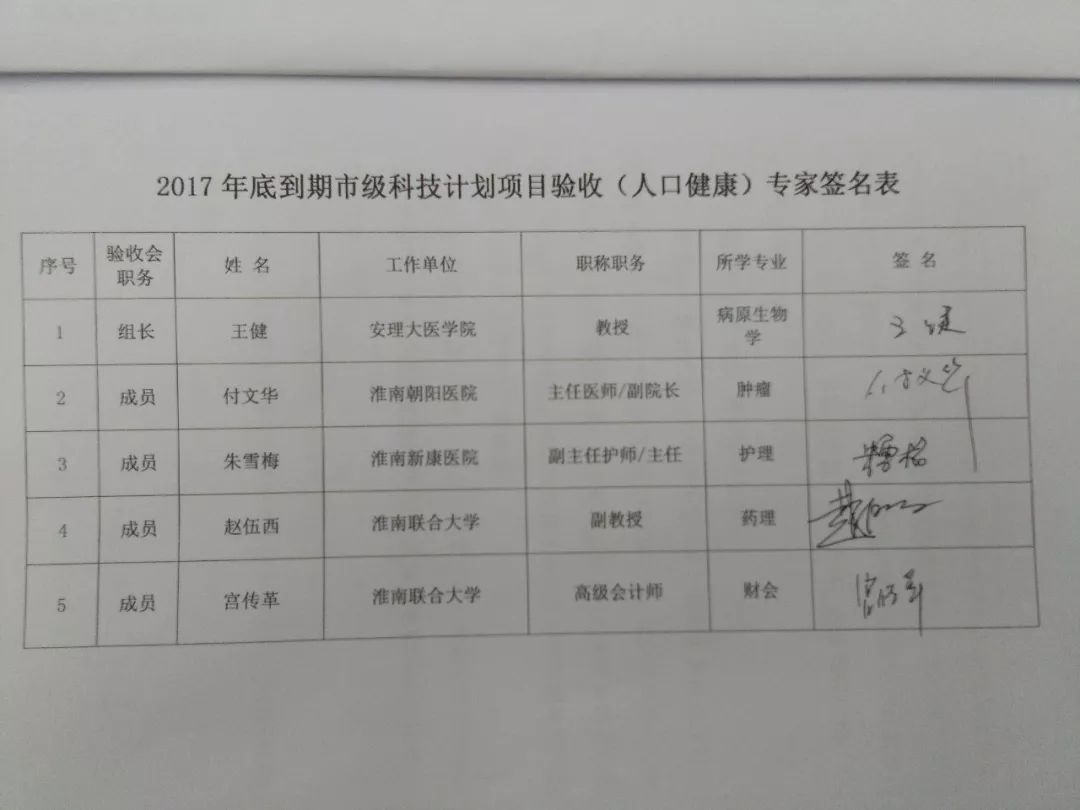 2017 年底到期市级科技计划项目验收（人口健康）专家签名表
序号 验收会职务 姓 名 工作单位 职称职务 所学专业 签 名
1 组长 王健 安理大医学院 教授 病原生物学 王健
2 成员 付文华 淮南朝阳医院 主任医师/副院长 肿瘤 付文华
3 成员 朱雪梅 淮南新康医院 副主任护师/主任 护理
4 成员 赵伍西 淮南联合大学 副教授 药理
5 成员 宫传革 淮南联合大学 高级会计师 财会